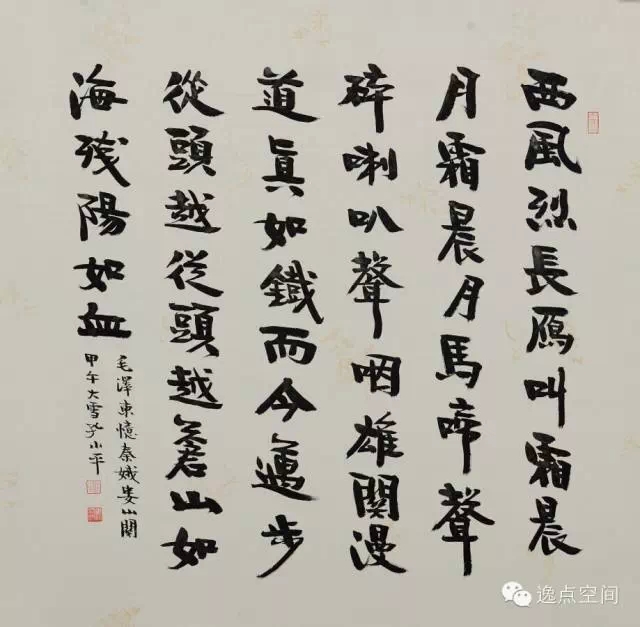 西風烈長鴈叫霜晨
月霜晨月馬啼聲
碎喇叭聲咽雄關漫
道眞如鐵而今邁步
從頭越從頭越蒼山如
海残陽如血
毛澤東憶秦娥娄山関
甲午大雪孔小平
逸点空间